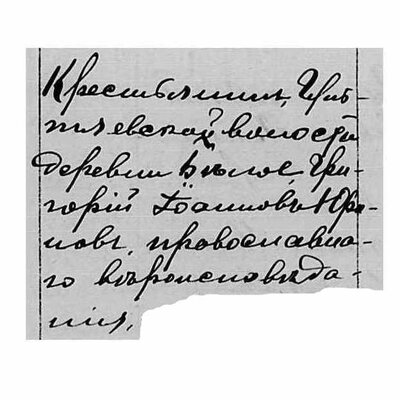 Крестьянин, Цвѣ-
тлевской волости
деревни Бѣлое Гри-
горій Іоанновъ Юра-
новъ, православна-
го вѣроисповѣда-
нія,